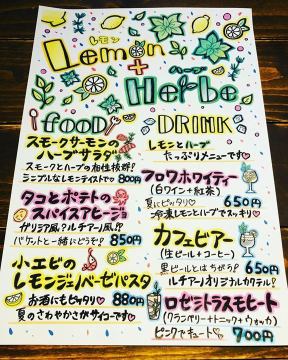 レモン
Lemon
+
ハーブ
Herbe
FOOD
スモークサーモンの
レモンサラダ
スモークとハーブの相性抜群!
シンプルなレモンテイストで 800円
タコとポテトの
スパイスアヒージョ
ガリシア風?ルチアーノ風!?
バゲットと一緒にどうぞ? 850円
小エビの
レモンジェノベーゼパスタ
お酒にもピッタリ♡ 880円
夏のさわやかさがサイコーです♡
DRINK
レモンとハーブ
たっぷりメニューです♡
フロワホワイティー
(白ワイン+紅茶)
夏にピッタリ♡ 650円
冷凍レモンとハーブでスッキリ♡
カフェビアー
(生ビール+コーヒー)
黒ビールとはちがう? 650円
ルチアーノオリジナルカクテル!
ロゼシトラスモヒート
(クランベリー+トニック+ウォッカ)
ピンクでキュート♡ 700円